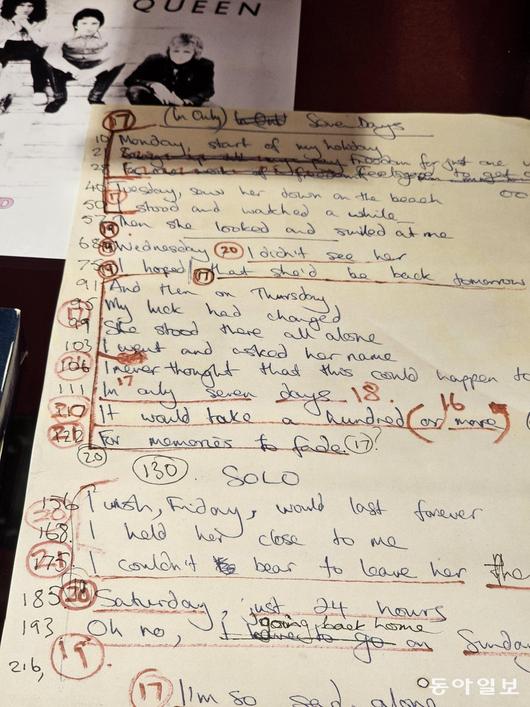 QUEEN
17 (In Only) Seven Days
10 Monday, start of my holiday
freedom for just one
40 Tuesday, saw her down on the beach
50 I stood and watched a while
57 Then she looked and smiled at me
68 Wednesday 20 I didn't see her
75 I hoped 17 that she'd be back tomorrow
91 And then on Thursday
95 My luck had changed
17 99 She stood there all alone
103 I went and asked her name
106 I never thought that this could happen to
111 In 17 only seven days 18.
It would take a hundred (or more) 16
For memories to fade. 17
20
130 SOLO
I wish, Friday, would last forever
168 I held her close to me
175 I couldn't bear to leave her the
185 Saturday, just 24 hours
193 Oh no, going back home on Sunday
216,
17 I'm so sad alone
동아일보